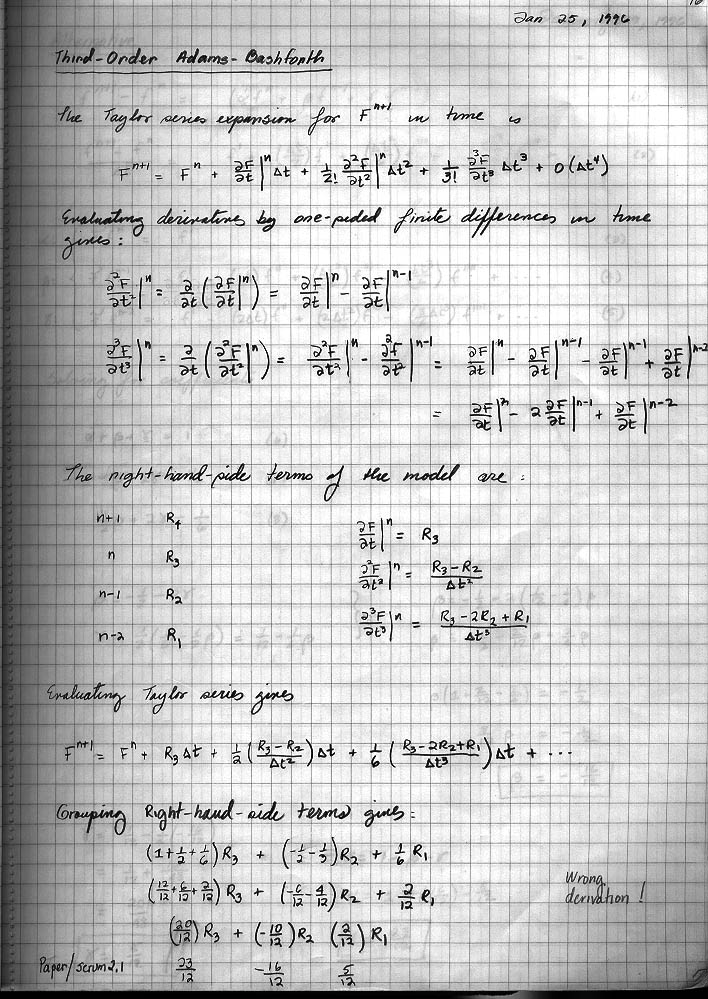 16
Jan 25, 1996
Third-Order Adams-Bashforth
The Taylor series expansion for F^{n+1} in time is
F^{n+1} = F^n + ∂F/∂t|^n Δt + 1/2! ∂²F/∂t²|^n Δt² + 1/3! ∂³F/∂t³ Δt³ + O(Δt⁴)
Evaluating derivatives by one-sided finite differences in time
gives:
∂²F/∂t²|^n = ∂/∂t (∂F/∂t|^n) = ∂F/∂t|^n - ∂F/∂t|^{n-1}
∂³F/∂t³|^n = ∂/∂t (∂²F/∂t²|^n) = ∂²F/∂t²|^n - ∂²f/∂t²|^{n-1} = ∂F/∂t|^n - ∂F/∂t|^{n-1} - ∂F/∂t|^{n-1} + ∂F/∂t|^{n-2}
= ∂F/∂t|^n - 2 ∂F/∂t|^{n-1} + ∂F/∂t|^{n-2}
The right-hand-side terms of the model are:
n+1 R₄
n R₃
n-1 R₂
n-2 R₁
∂F/∂t|^n = R₃
∂²F/∂t²|^n = (R₃-R₂)/Δt²
∂³F/∂t³|^n = (R₃-2R₂+R₁)/Δt³
Evaluating Taylor series gives
F^{n+1} = F^n + R₃Δt + 1/2 ((R₃-R₂)/Δt²) Δt + 1/6 ((R₃-2R₂+R₁)/Δt³) Δt + ...
Grouping Right-hand-side terms gives:
(1+1/2+1/6) R₃ + (-1/2-1/3) R₂ + 1/6 R₁
(12/12+6/12+2/12) R₃ + (-6/12-4/12) R₂ + 2/12 R₁
(20/12) R₃ + (-10/12) R₂ (2/12) R₁
23/12 -16/12 5/12
Wrong
derivation!
Paper/scrum2.1